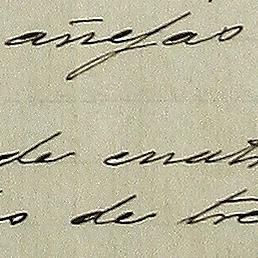 añejas
de cuatr
os de tre